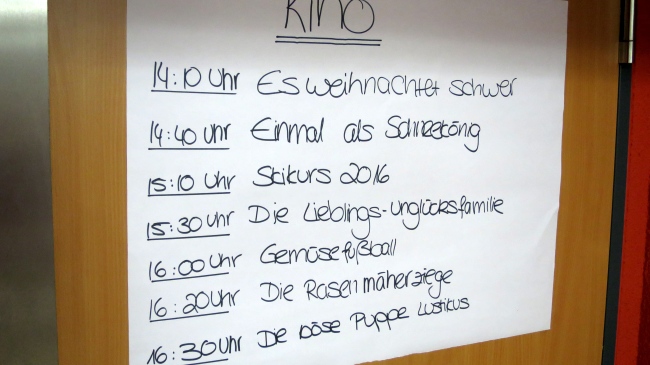 KINO
14:10 Uhr Es weihnachtet schwer
14:40 Uhr Einmal als Schneekönig
15:10 Uhr Skikurs 2016
15:30 Uhr Die Lieblings-Unglücksfamilie
16:00 Uhr Gemüsefußball
16:20 Uhr Die Rasenmäherziege
16:30 Uhr Die böse Puppe Lustikus